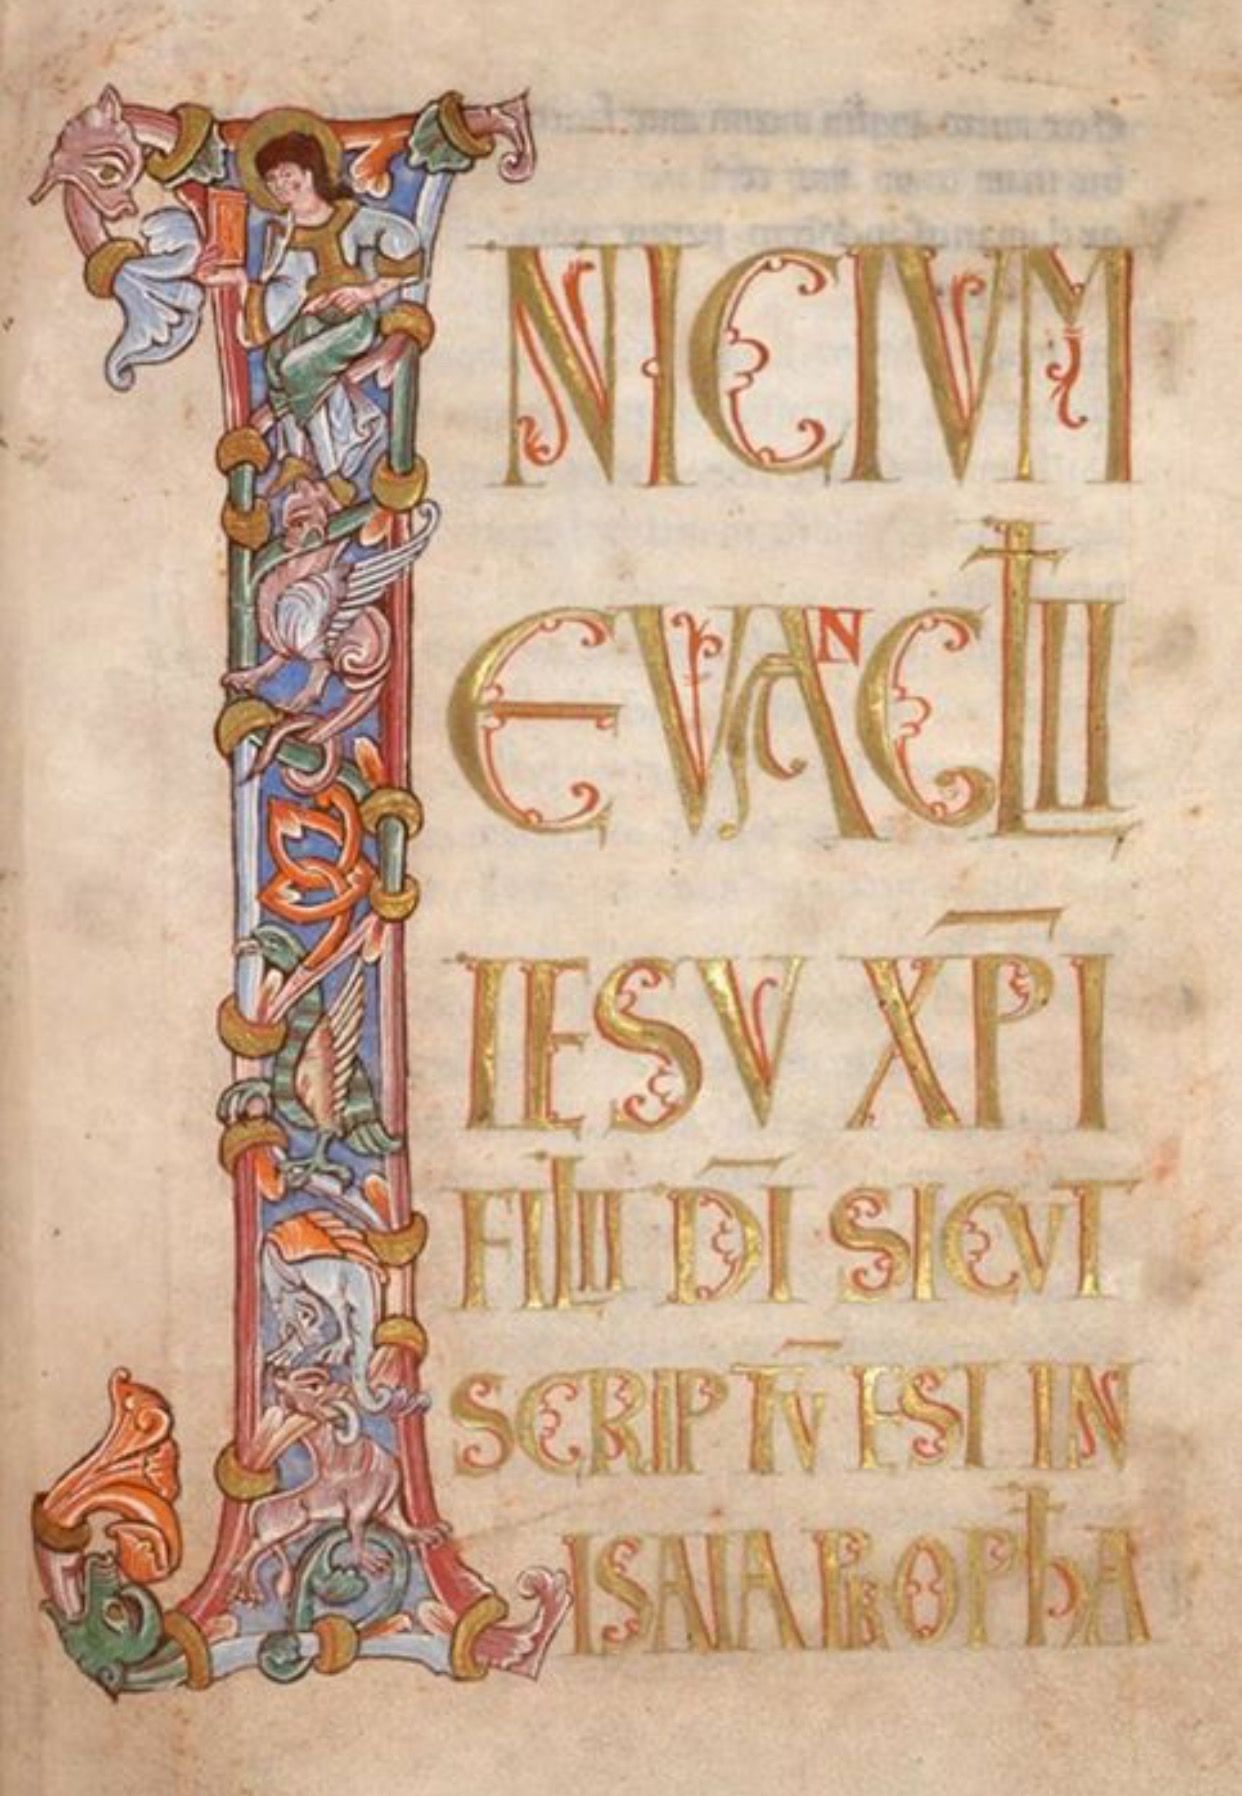 INICIUM
EVANGLII
IESV XP̅I
FILII D̅I SICVT
SCRIPTV̅ EST IN
ISAIA PROPħA